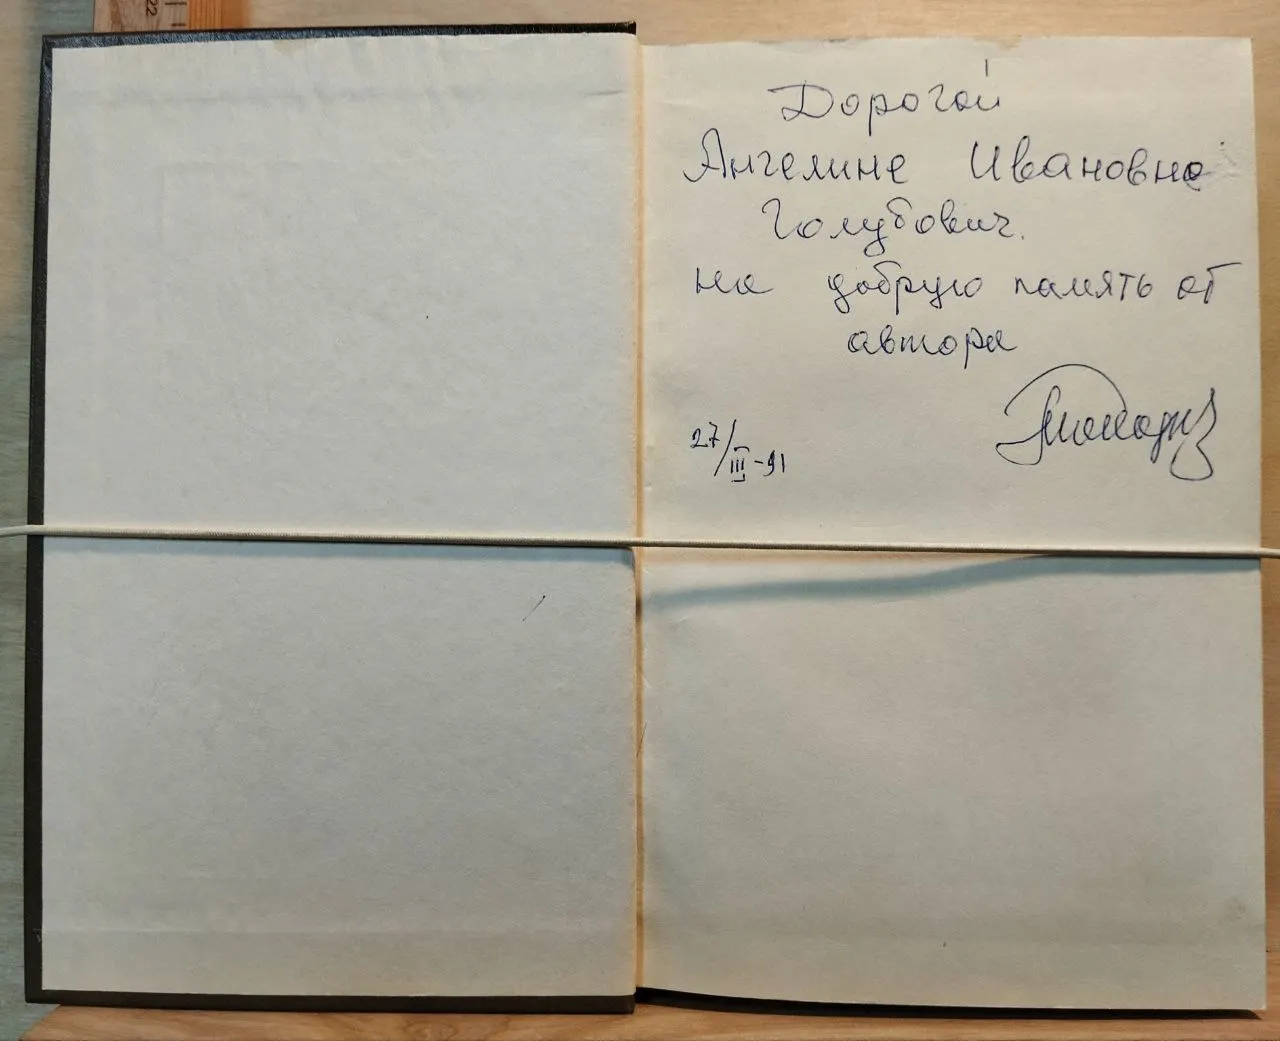 22
Дорогой
Ангелине Ивановне
Голубович.
на добрую память от
автора
27/III-91